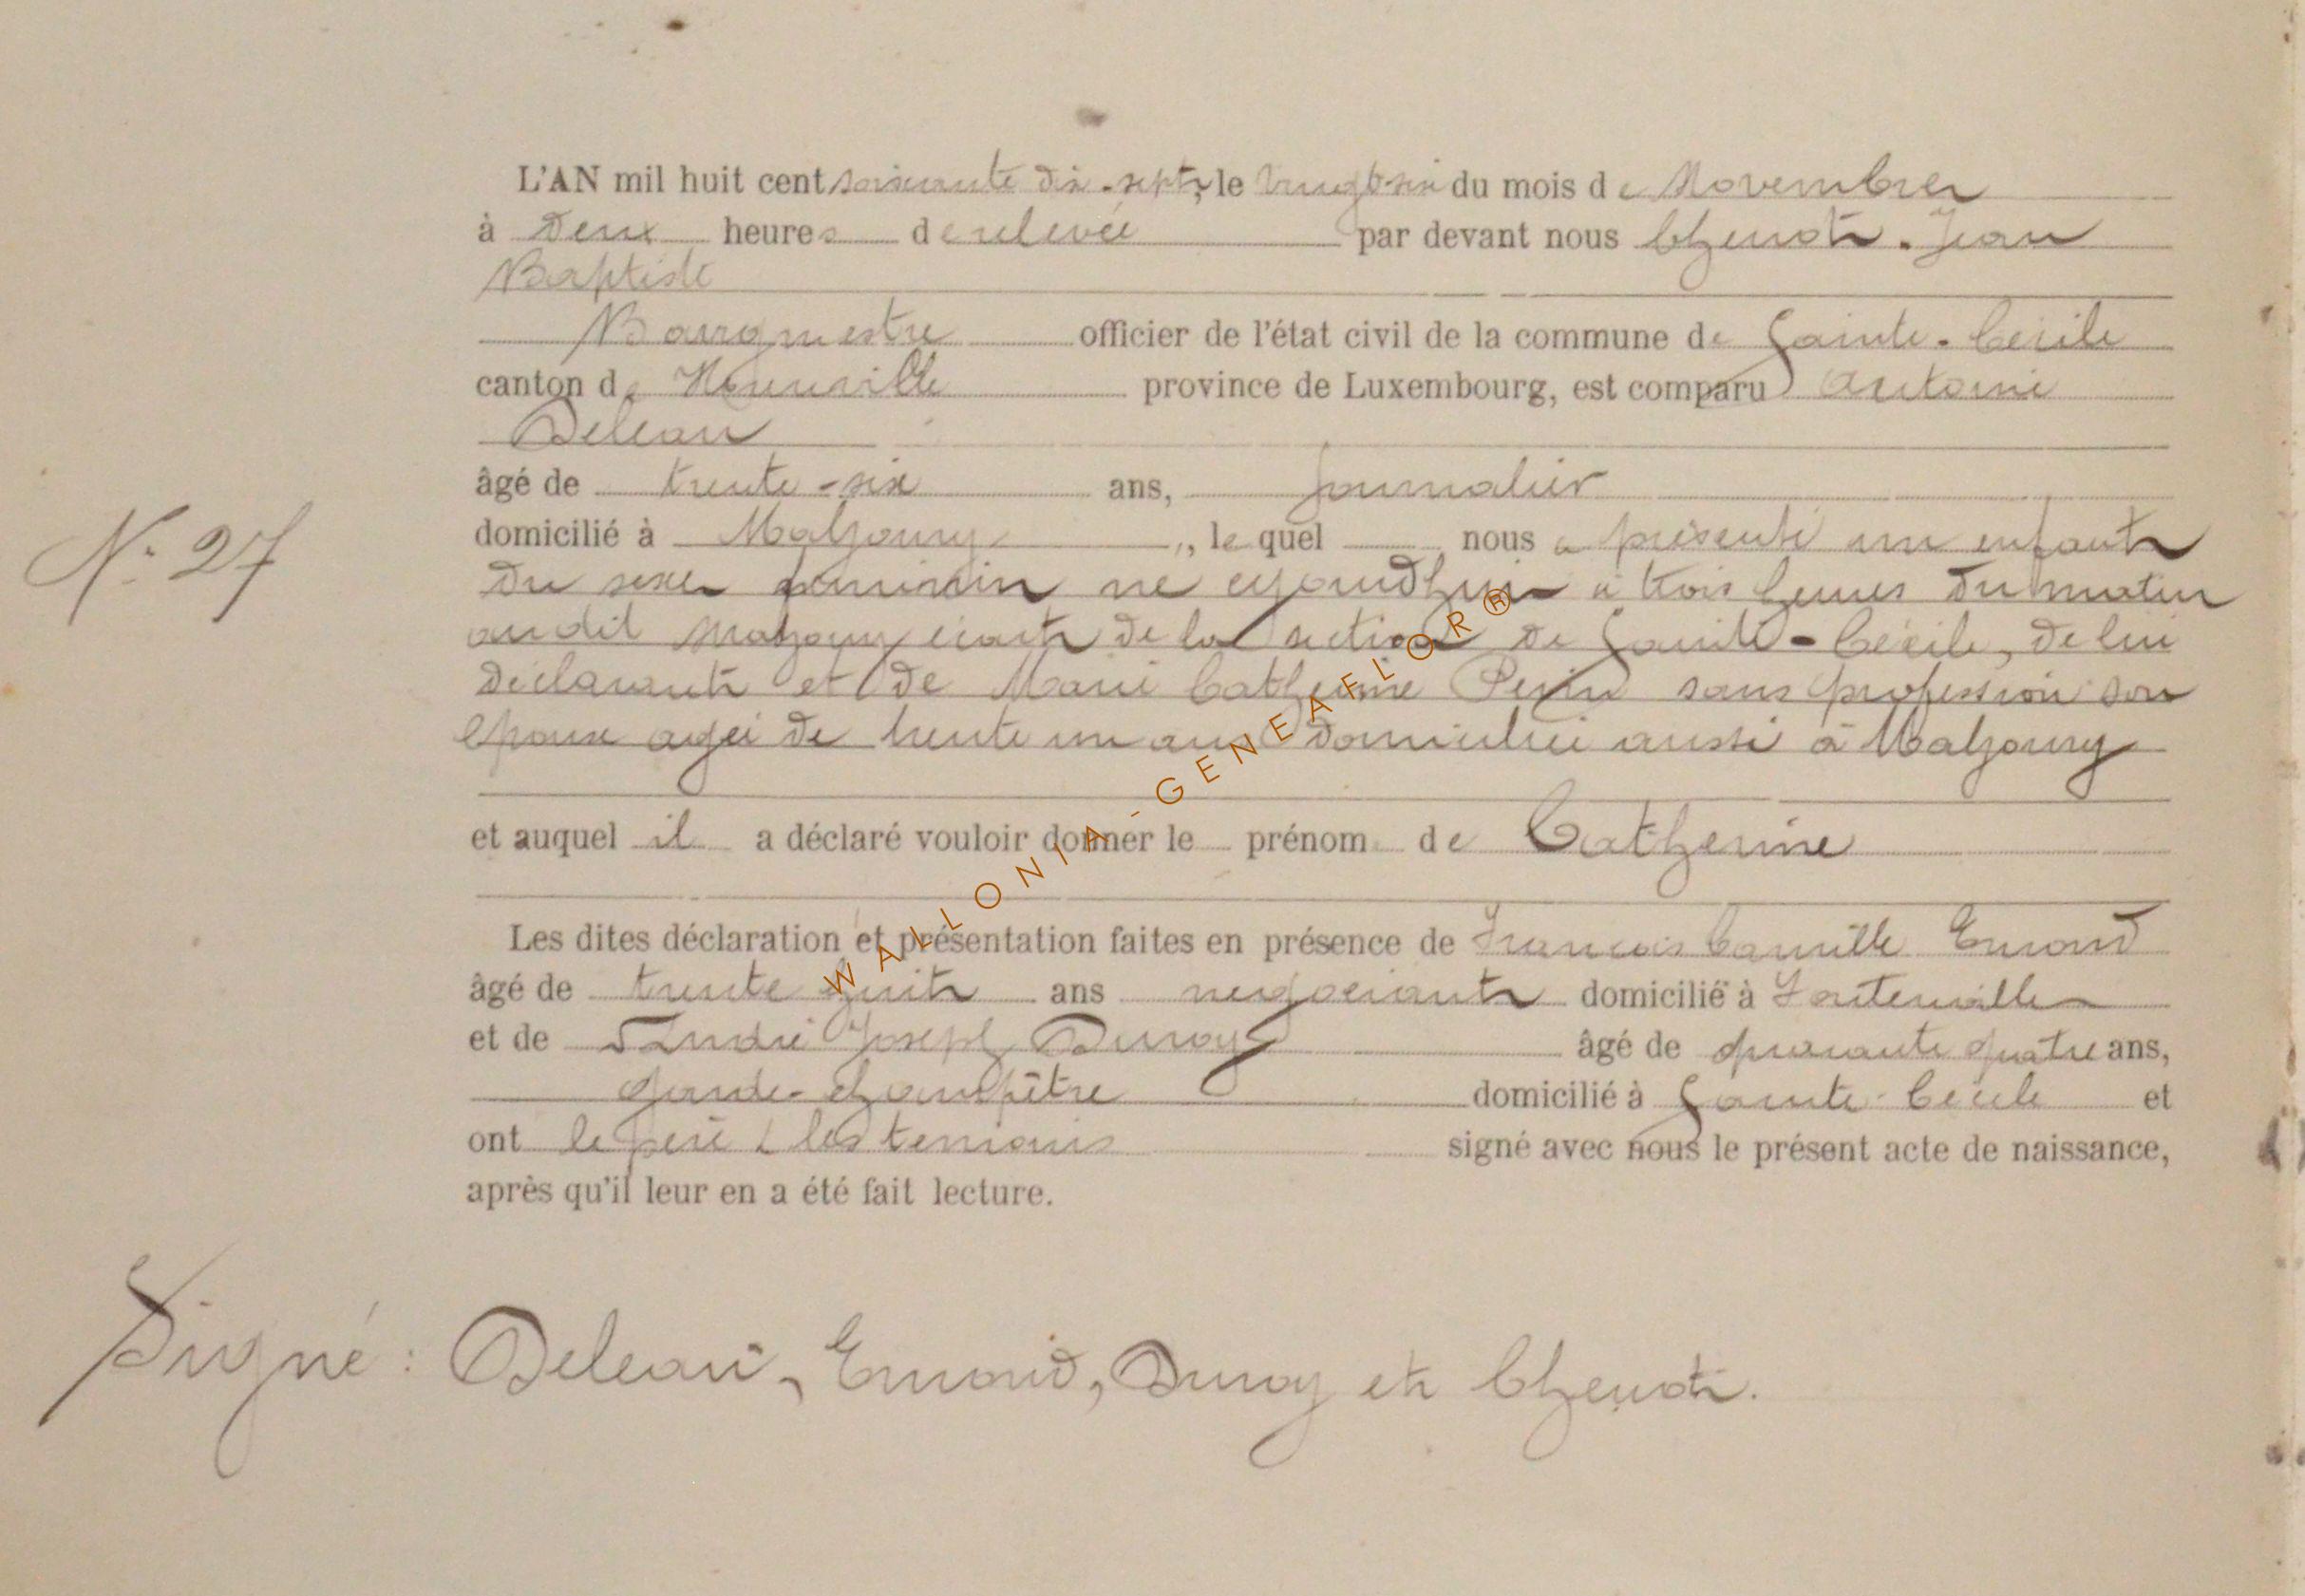 L'AN mil huit cent soixante dix-sept, le vingt-six du mois de Novembre
à Deux heures de relevée par devant nous Chenot. Jean
Baptiste
Bourgmestre officier de l'état civil de la commune de Sainte-Cécile
canton de province de Luxembourg, est comparu Antoine
Deleau
âgé de trente-six ans, journalier
domicilié à Mahoury, le quel nous a présenté un enfant
Du sexe feminin né cejourd'hui à trois heures Du matin
au dit Mahoury écart De la section De Sainte-Cécile, De lui
Déclarant et De Marie Catherine Perin sans profession son
épouse agée De trente un ans Domiciliée aussi à Mahoury
N° 27
et auquel il a déclaré vouloir donner le prénom de Catherine
Les dites déclaration et présentation faites en présence de François Camille Emond
âgé de trente huit ans negociant domicilié à Fontenoille
et de André Joseph Duroy âgé de quarante quatre ans,
garde-champêtre domicilié à Sainte-Cécile et
ont le père & les temoins signé avec nous le présent acte de naissance,
après qu'il leur en a été fait lecture.
Signé : Deleau, Emond, Duroy et Chenot.
WALLONIA - GENEAFLOR®